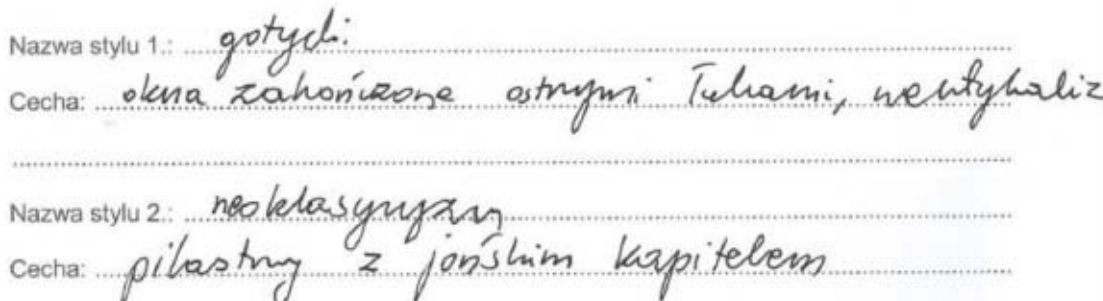 Nazwa stylu 1.: gotycki
Cecha: okna zakończone ostrymi łukami, wertykaliz
Nazwa stylu 2.: neoklasycyzm
Cecha: pilastry z jońskim kapitelem